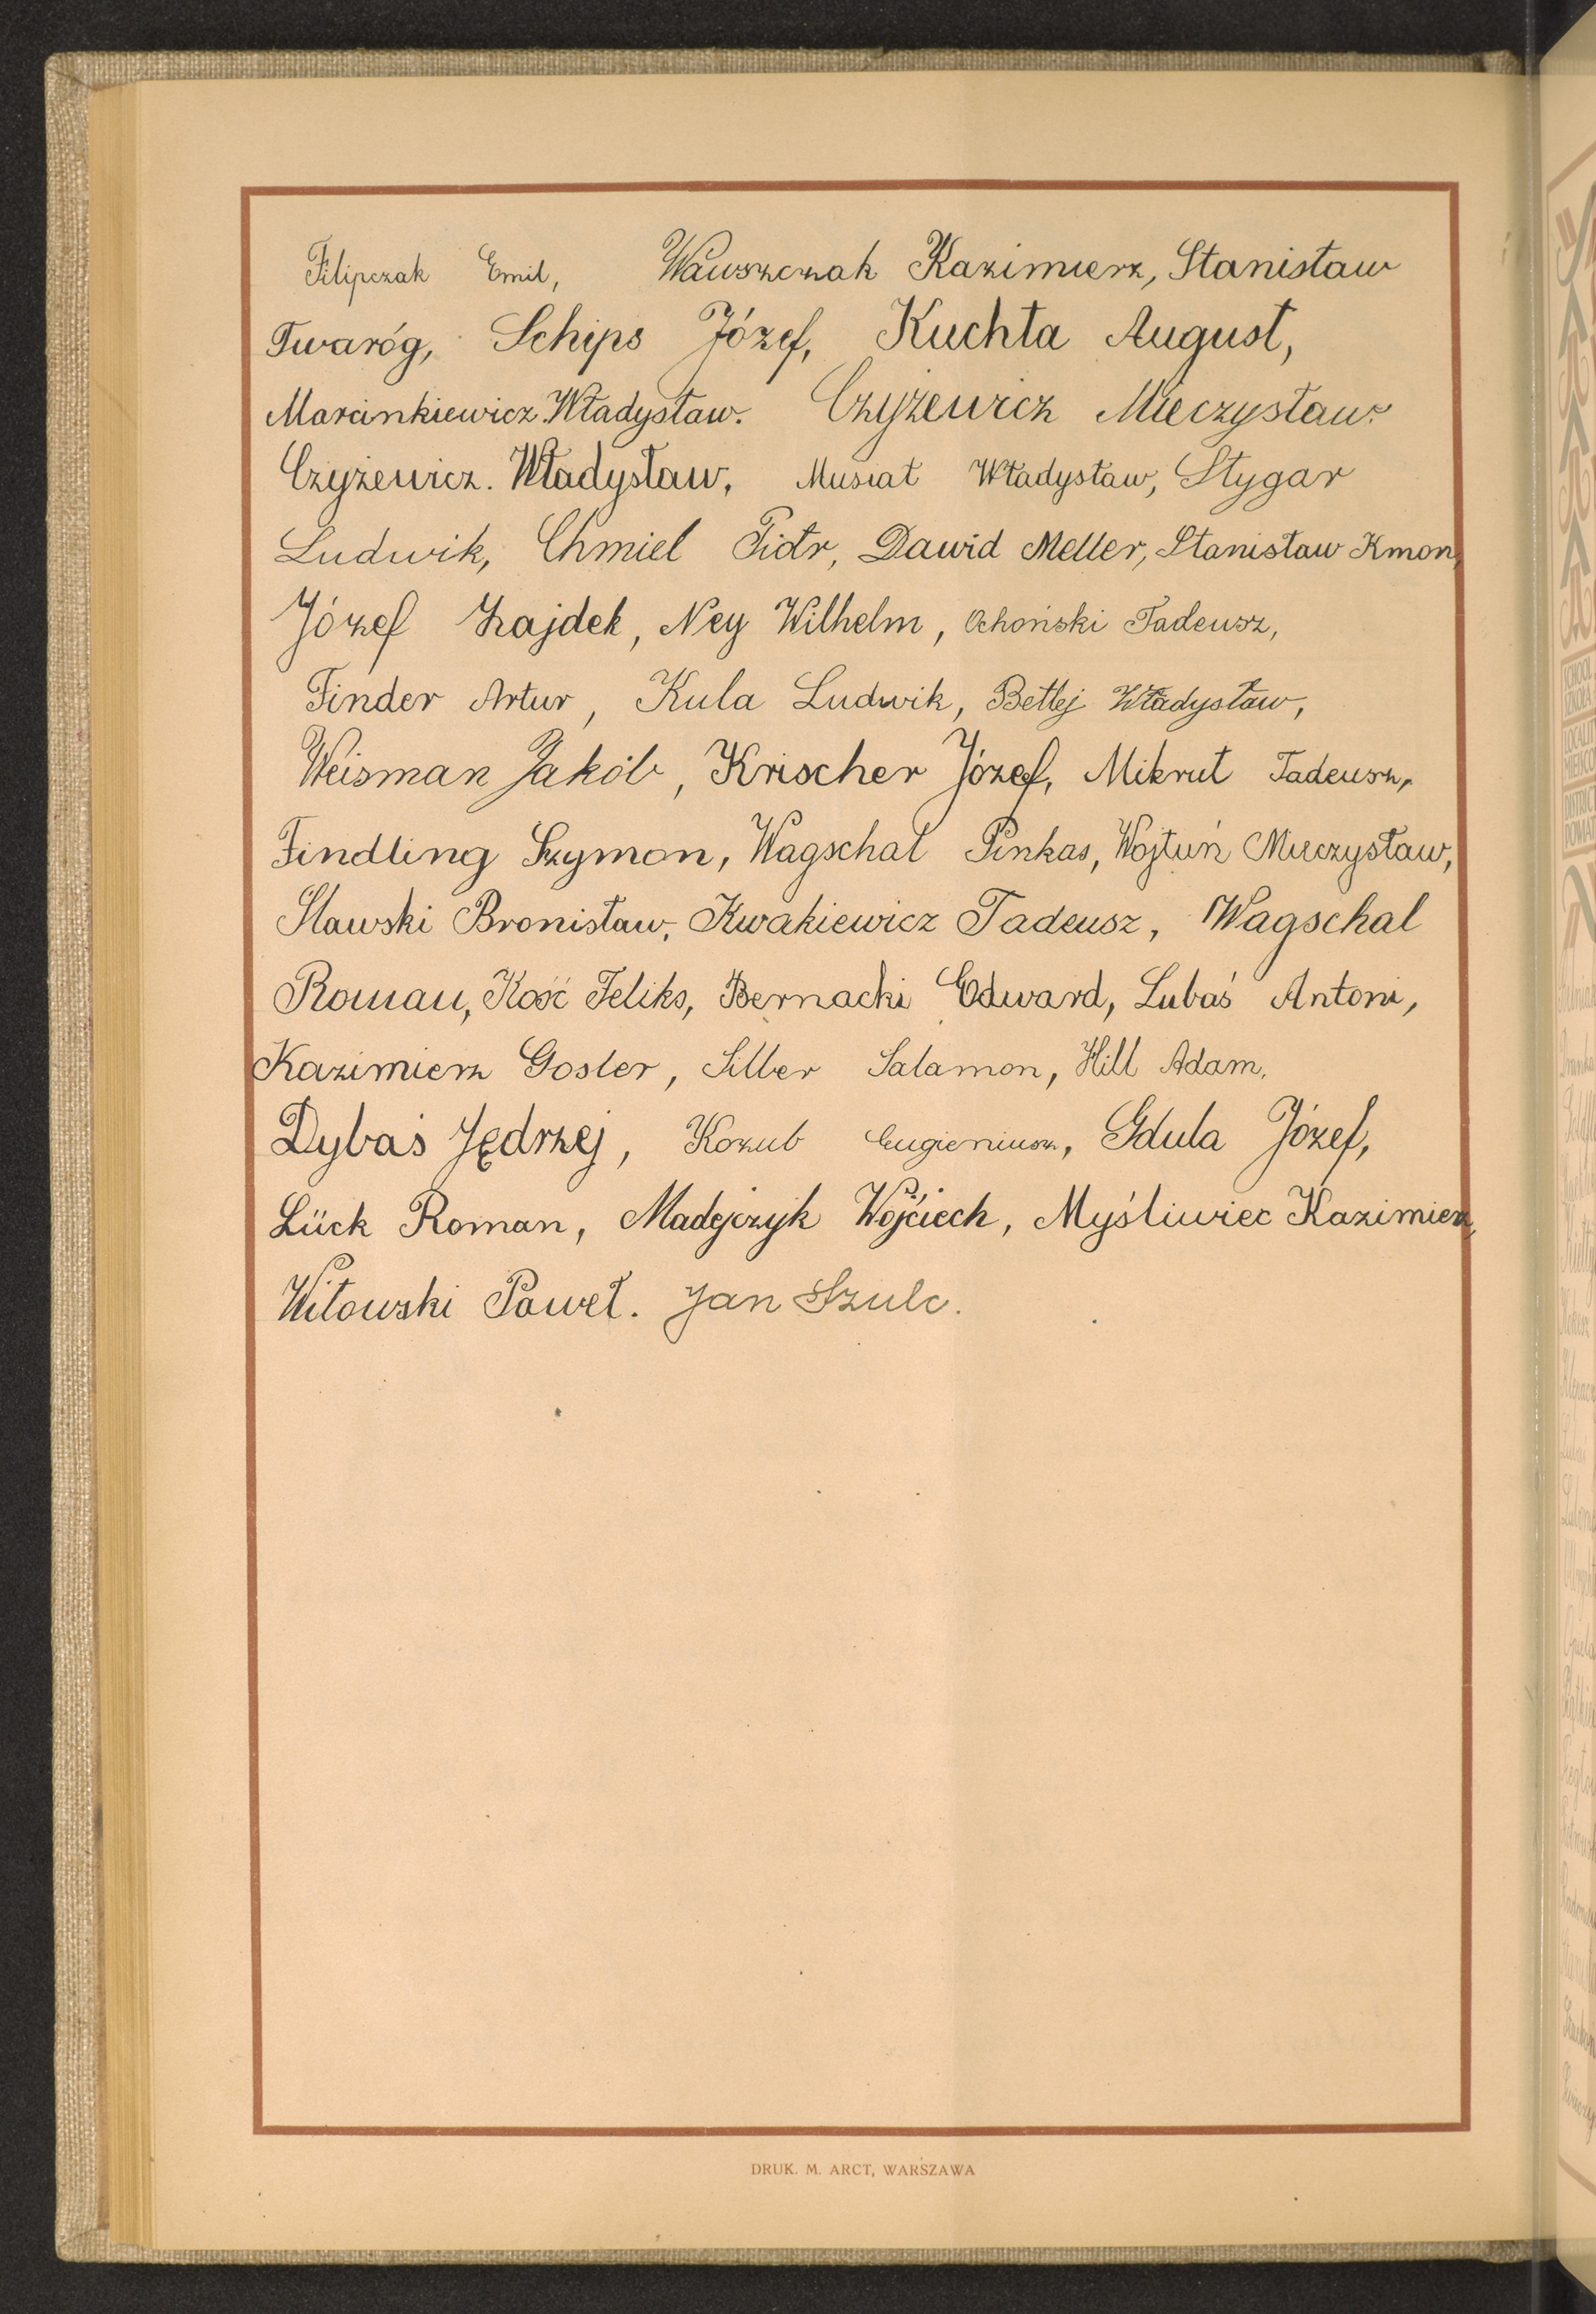 Filipczak Emil, Wawszczak Kazimierz, Stanisław
Twaróg, Schips Józef, Kuchta August,
Marcinkiewicz Władysław. Czyżewicz Mieczysław.
Czyżewicz. Władysław, Musiał Władysław, Stygar
Ludwik, Chmiel Piotr, Dawid Meller, Stanisław Kmon,
Józef Zajdek, Ney Wilhelm, Ochoński Tadeusz,
Finder Artur, Kula Ludwik, Betlej Władysław,
Weisman Jakób, Krischer Józef, Mikrut Tadeusz,
Findling Szymon, Wagschal Pinkas, Wojtuń Mieczysław,
Sławski Bronisław, Kwakiewicz Tadeusz, Wagschal
Roman, Kość Feliks, Bernacki Edward, Lubaś Antoni,
Kazimierz Gosler, Silber Salamon, Hill Adam,
Dybaś Jędrzej, Kozub Eugieniusz, Gdula Józef,
Lück Roman, Madejczyk Wójciech, Myśliwiec Kazimierz,
Witowski Paweł. Jan Szulc.
DRUK. M. ARCT, WARSZAWA